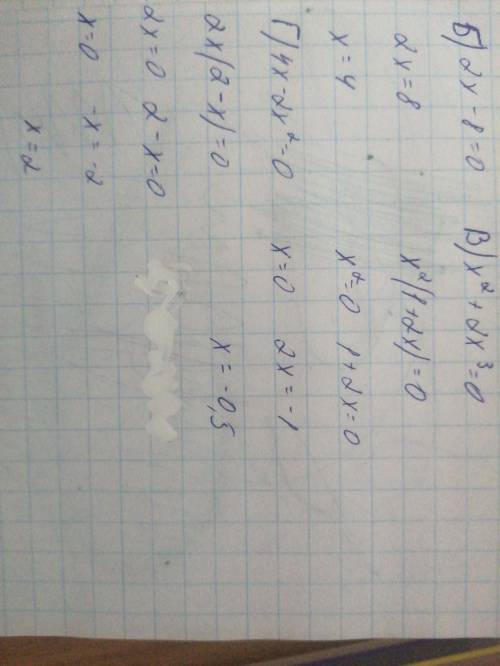 Б) 2x - 8 = 0
2x = 8
x = 4
Г) 4x - 2x² = 0
2x(2 - x) = 0
2x = 0 2 - x = 0
x = 0 -x = -2
x = 2
В) x² + 2x³ = 0
x²(1 + 2x) = 0
x² = 0 1 + 2x = 0
x = 0 2x = -1
x = -0,5